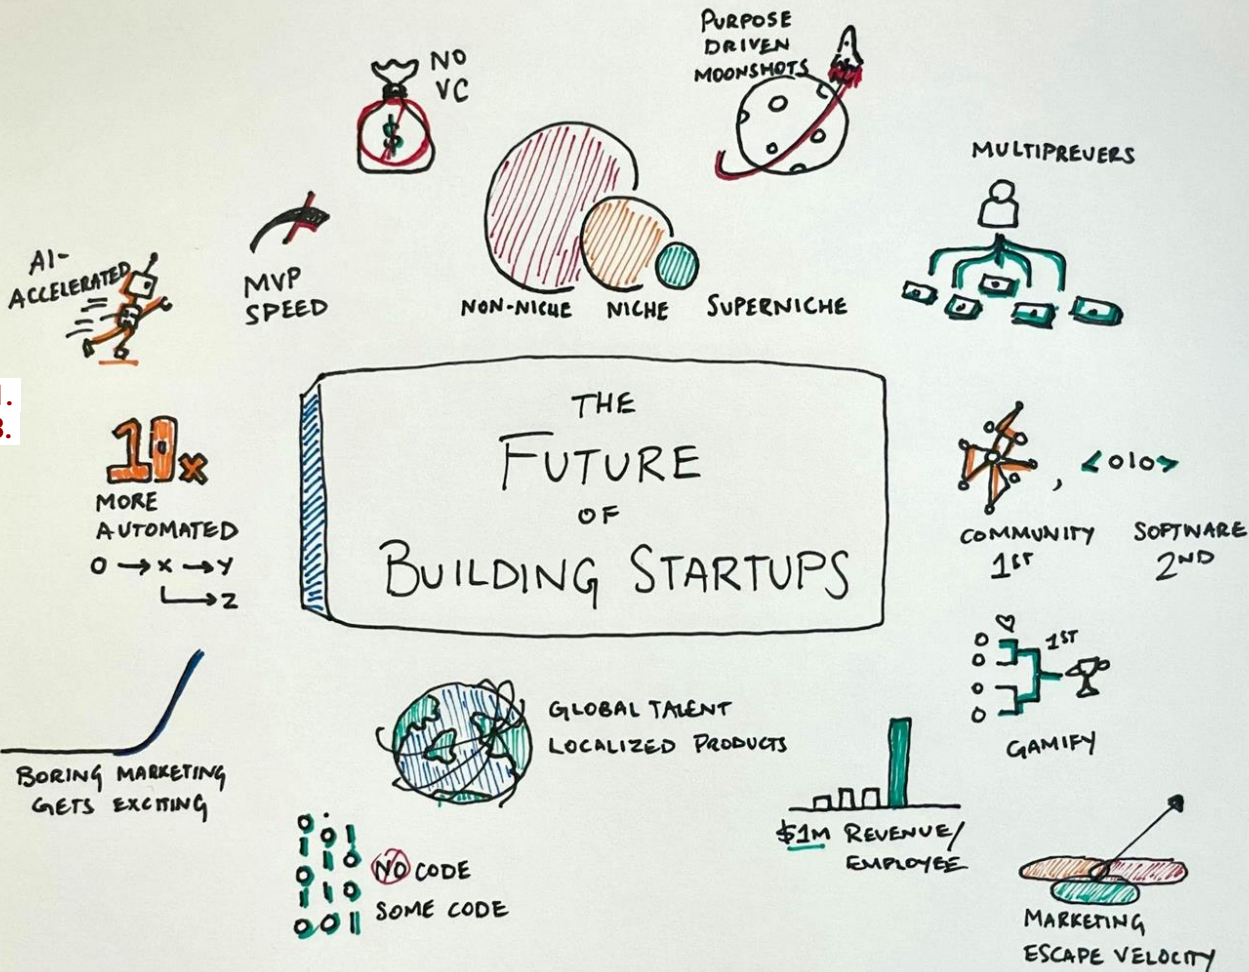 PURPOSE
DRIVEN
MOONSHOTS
NO
VC
$
MULTIPREUERS
AI-
ACCELERATED
MVP
SPEED
NON-NICHE NICHE SUPERNICHE
THE
FUTURE
OF
BUILDING STARTUPS
10x
MORE
AUTOMATED
0 → x → Y
→ Z
, <010>
COMMUNITY SOFTWARE
1ST 2ND
1ST
GAMIFY
BORING MARKETING
GETS EXCITING
GLOBAL TALENT
LOCALIZED PRODUCTS
$1M REVENUE/
EMPLOYEE
NO CODE
SOME CODE
MARKETING
ESCAPE VELOCITY